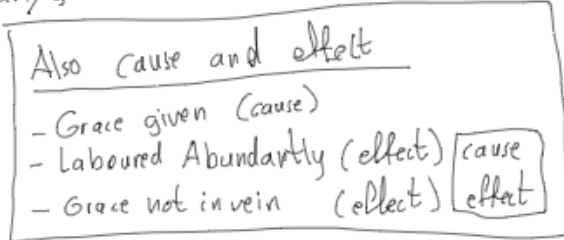 Also cause and effect
- Grace given (cause)
- Laboured Abundantly (effect) cause
- Grace not in vein (effect) effect